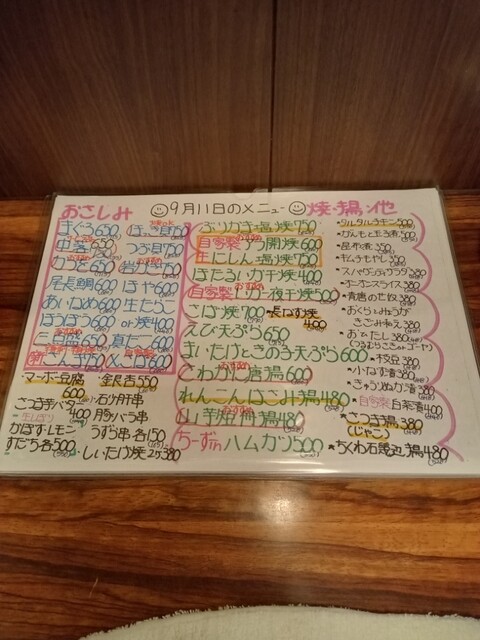 おさしみ
9月11日のメニュー
焼・揚・他
まぐろ650
ほっき貝750
中トロ
つぶ貝750
おすすめ
かつお650
岩がき750
尾長鯛600
ほや600
あいなめ600
生たこ
ほうぼう600
or 焼400
三点盛650
真だこ600
さんま450
〆さば600
マーボー豆腐
600
銀杏550
さつま芋バター
400
石夕月串
豚バラ串
生しぼり
かぼす・レモン
すだち各500
うずら串各150
しいたけ焼2コ380
ぶりかま塩焼750
おすすめ
自家製 開600
生にしん塩焼750
ほたるいか干焼400
自家製 イカ一夜干焼500
さば焼700
★長なす焼
400
えび天ぷら650
まいたけときのこ天ぷら600
さわがに唐揚600
れんこんはさみ揚480
山芋短冊揚480
チーズinハムカツ500
★タルタルチキン500
★昆布煮350
★キムチもやし350
★スパゲッティサラダ380
★オニオンスライス380
★青唐のたね380
★おくらとみょうが
きざみ和え380
★おひたし380
(つるむらさきorゴーヤ)
★枝豆380
★小なす漬380
★きゅうりぬか漬380
★自家製白菜漬400
★さつま揚380
(じゃこ)
★ちくわ石垣辺揚480